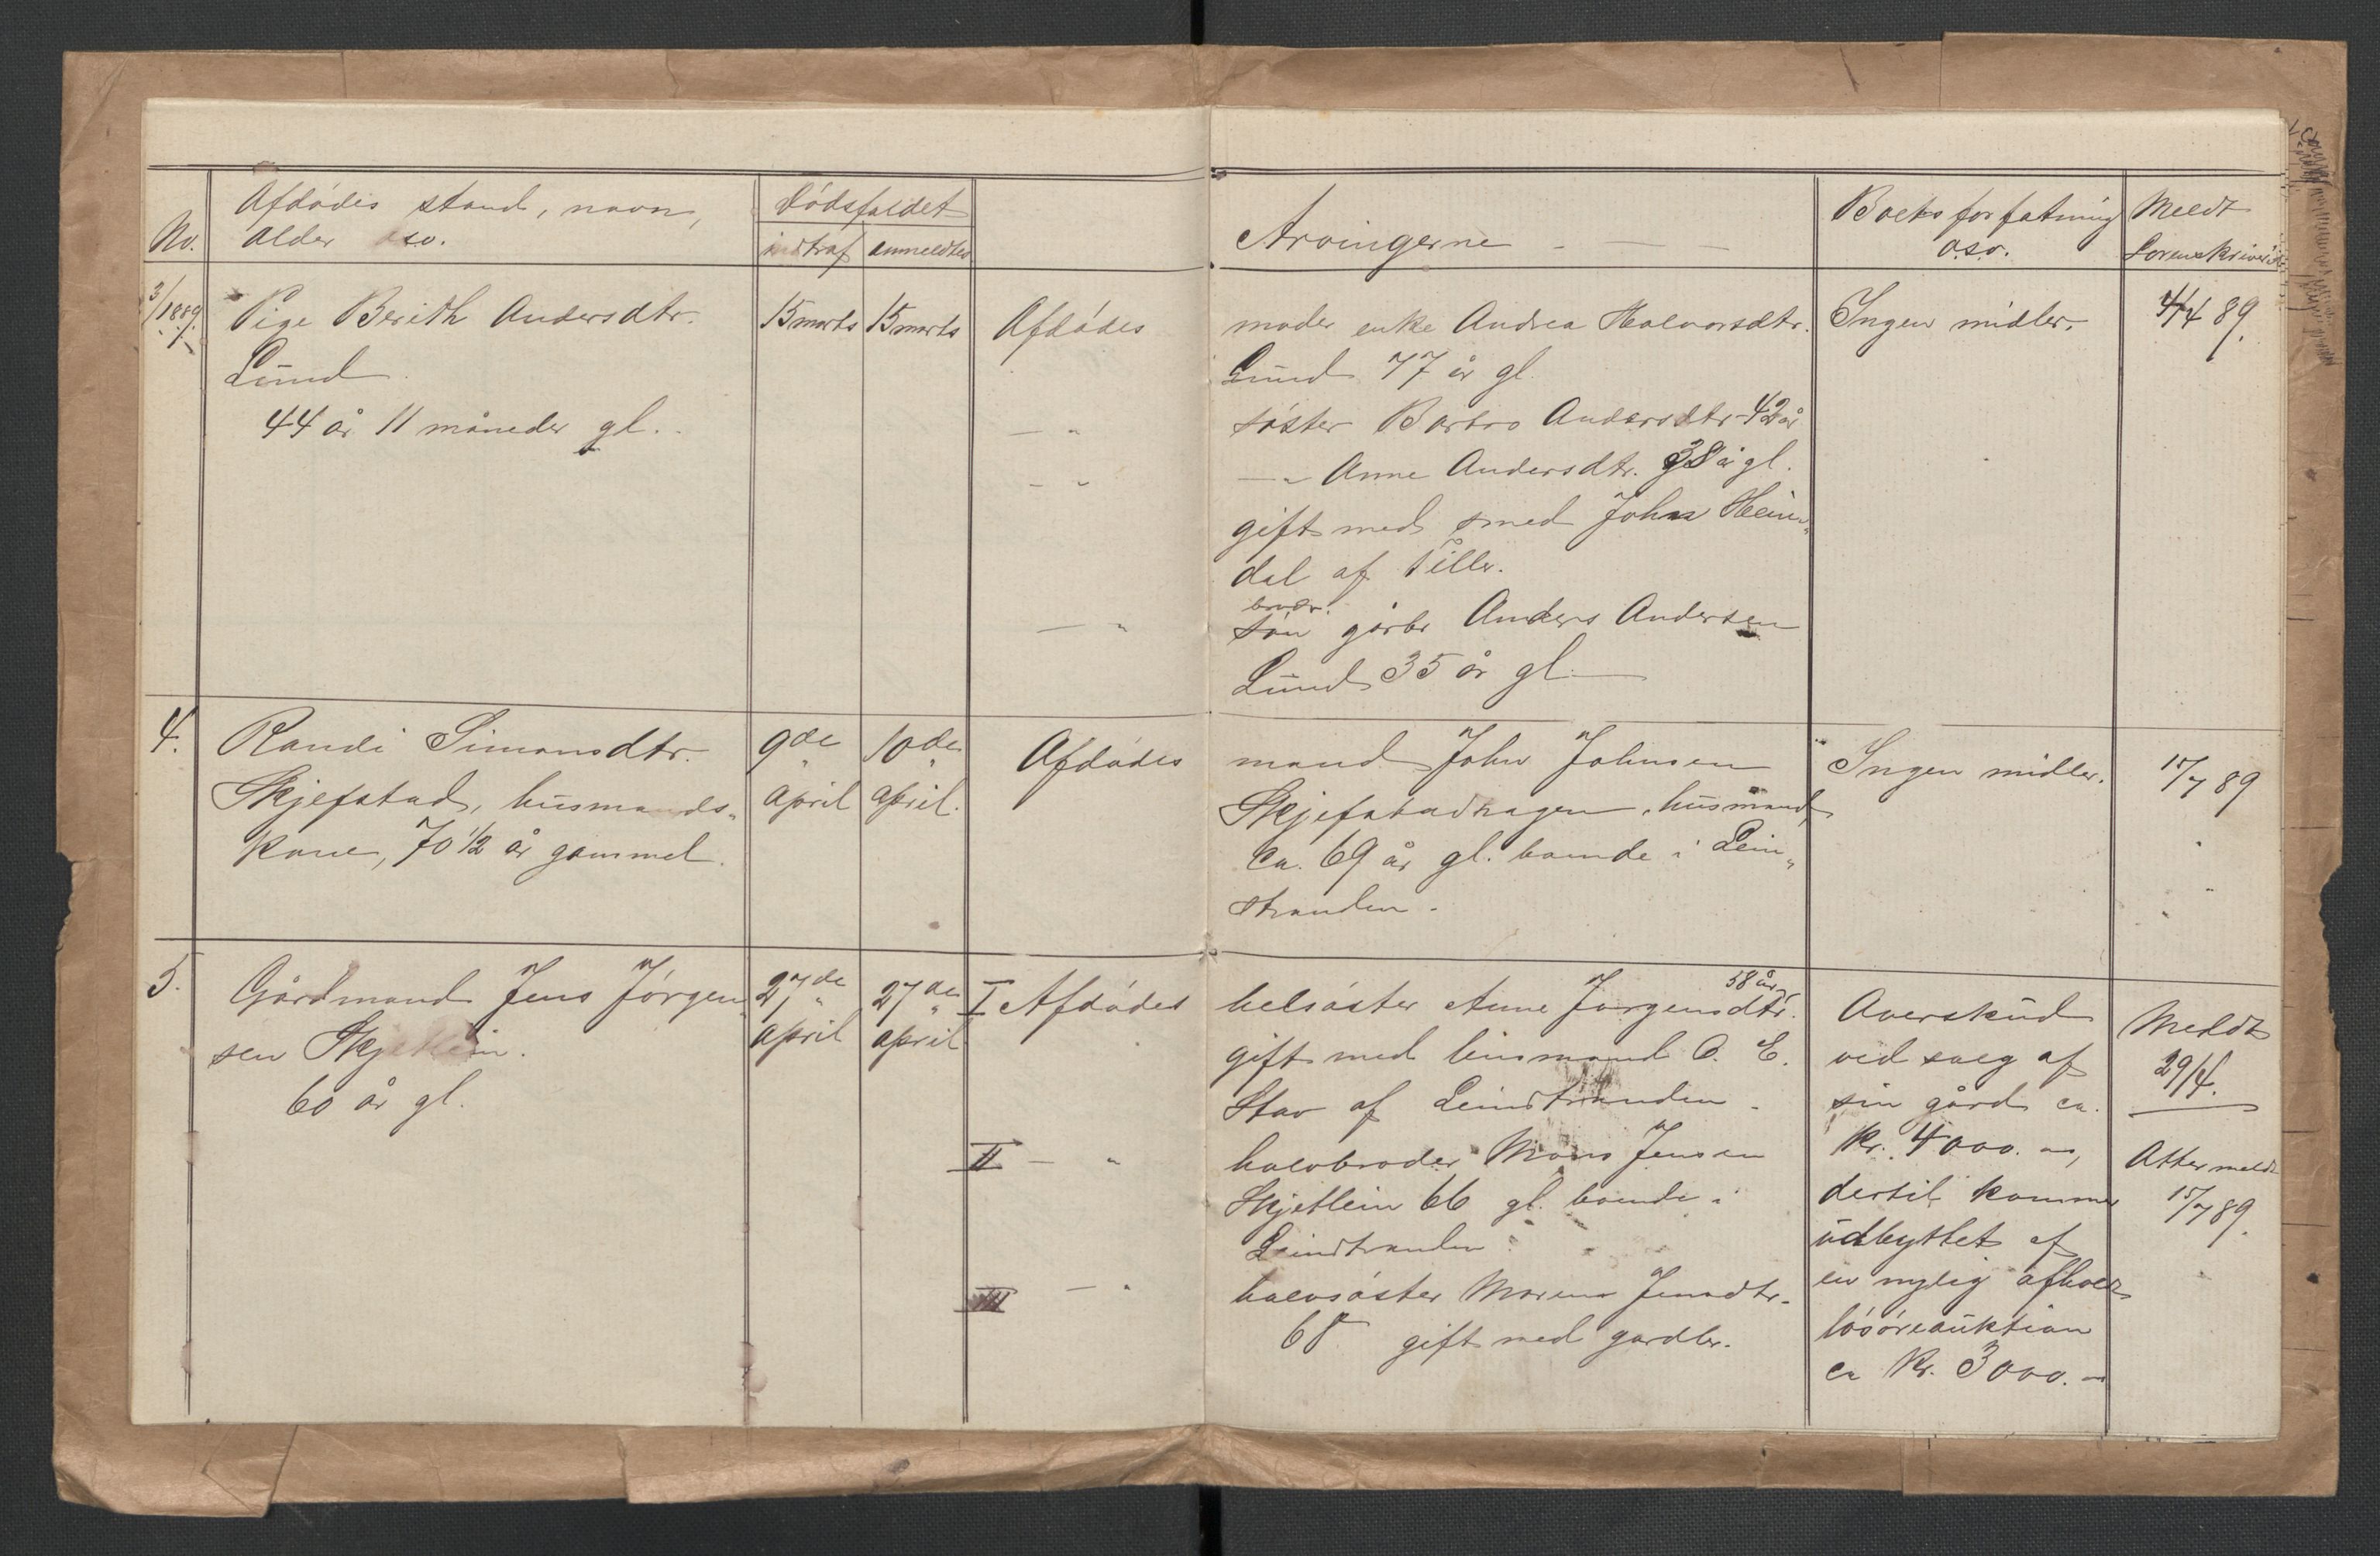 No.
Afdødes stand, navn,
alder osv.
Dødsfaldet
indtraf anmeldtes
Arvingerne
Boets forfatning
o.s.v.
Meldt
Sorenskriveren
3/1889.
Pige Berith Andersdtr.
Lund.
44 år 11 måneder gl.
15 marts
15 marts
Afdødes
moder enke Andrea Halvorsdtr.
Lund 77 år gl.
søster Barbro Andersdtr 42 år
— " Anne Andersdtr. 38 år gl.
gift med smed John Heim„
dal af Tiller.
— "
broder.
søn gårbr Anders Andersen
Lund 35 år gl.
Ingen midler.
4/4 89.
4.
Randi Simonsdtr.
Skjefstad, husmands„
kone, 70 1/2 år gammel.
9de
april
10de
april.
Afdødes
mand John Johnsen
Skjefstadhagen, husmand,
ca. 69 år gl. boende i Lein„
stranden.
Ingen midler.
15/7 89
5.
Gårdmand Jens Jørgen„
sen Skjetlein.
60 år gl.
27de
april
27de
april
I Afdødes
helsøster Anne Jørgensdtr. 58 år,
gift med linsmand O. E.
Stav af Leinstranden.
II — "
halvbroder Mons Jensen
Skjetlein 66 gl. boende i
Leinstranden.
III — "
halvsøster Marena Jensdtr.
68 gift med gardbr.
Overskud
ved salg af
sin gård ca.
Kr. 4000. –,
dertil kommer
udbyttet af
en nylig afholdt
løsøreauktion
ca Kr. 3000. –
Meldt
29/4.
Atter meldt
15/7 89.